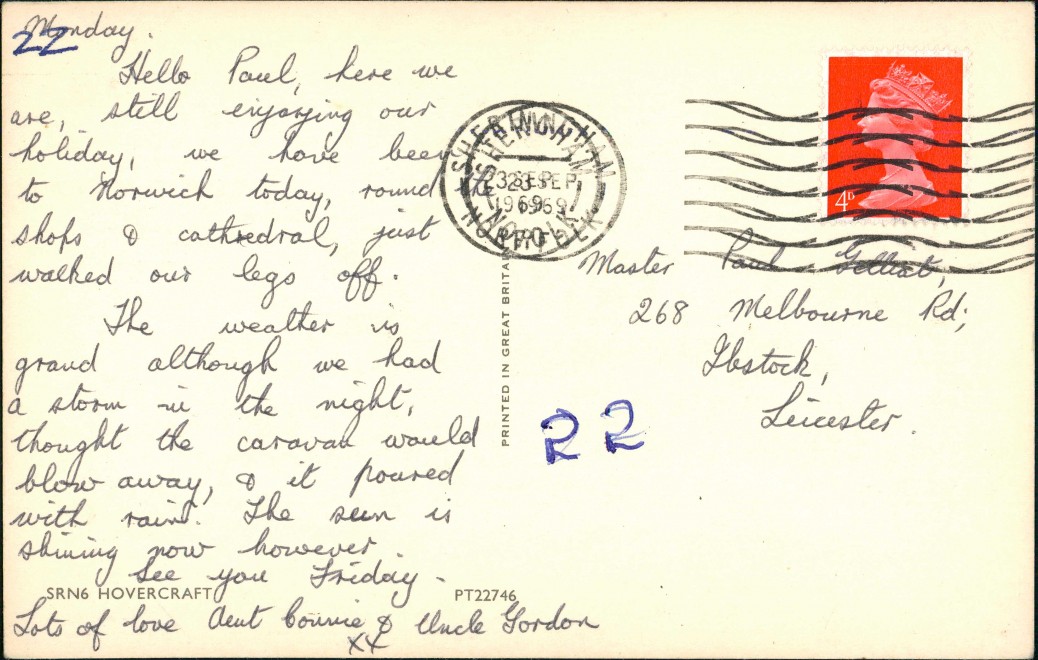 Monday.
22
Hello Paul, here we
are, still enjoying our
holiday, we have been
to Norwich today, round
shops & cathedral, just
walked our legs off.
The weather is
grand although we had
a storm in the night,
thought the caravan would
blow away, & it poured
with rain. The sun is
shining now however.
See you Friday.
Lots of love Aunt Connie & Uncle Gordon
XX
SRN6 HOVERCRAFT
PT22746
PRINTED IN GREAT BRITAIN
SHERINGHAM
23 SEP
1969
NORFOLK
4D
Master Paul
268 Melbourne Rd;
Ibstock,
Leicester.
22